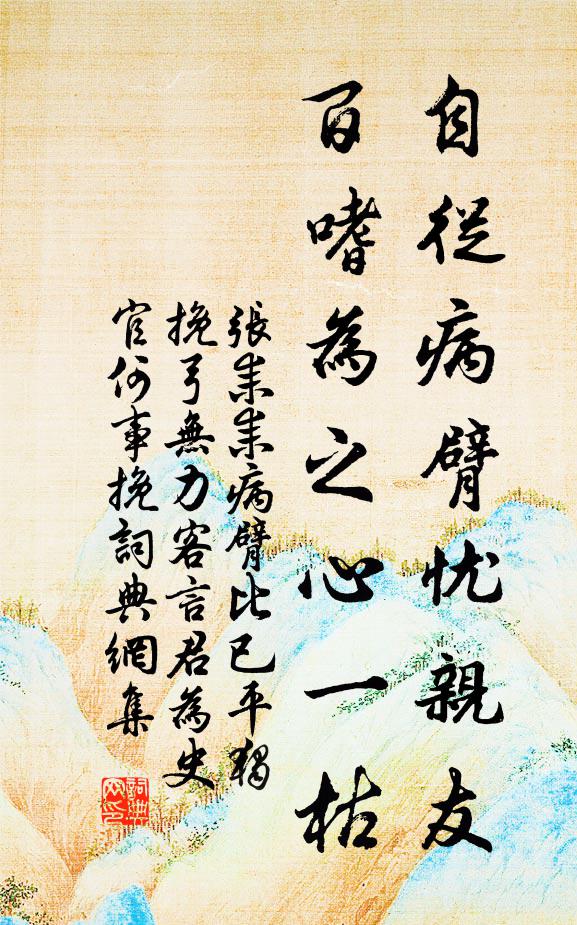 自從病臂忧親友
百嗜為之心一枯
張耒耒病臂比已平獨
挽弓無力客言君為史
官何事挽詞典網集
詞典網印